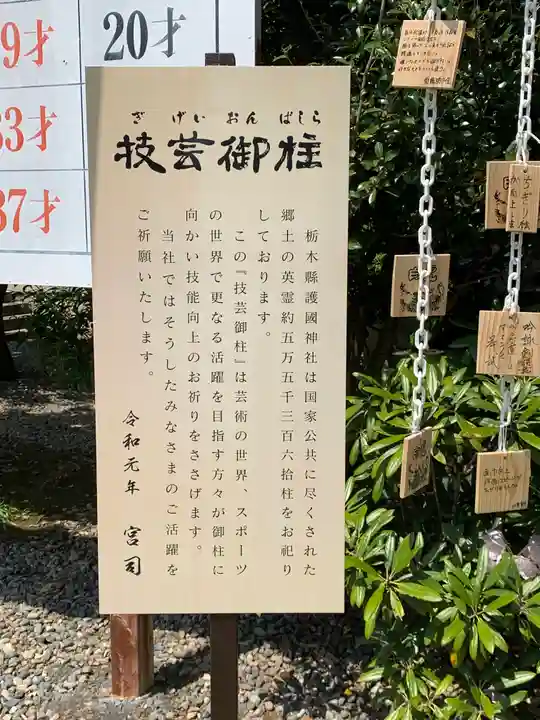 9才
20才
33才
37才
ぎ げい おん ばしら
技芸御柱
栃木縣護國神社は国家公共に尽くされた
郷土の英霊約五万五千三百六拾柱をお祀り
しております。
この『技芸御柱』は芸術の世界、スポーツ
の世界で更なる活躍を目指す方々が御柱に
向かい技能向上のお祈りをささげます。
当社ではそうしたみなさまのご活躍を
ご祈願いたします。
令和元年 宮司